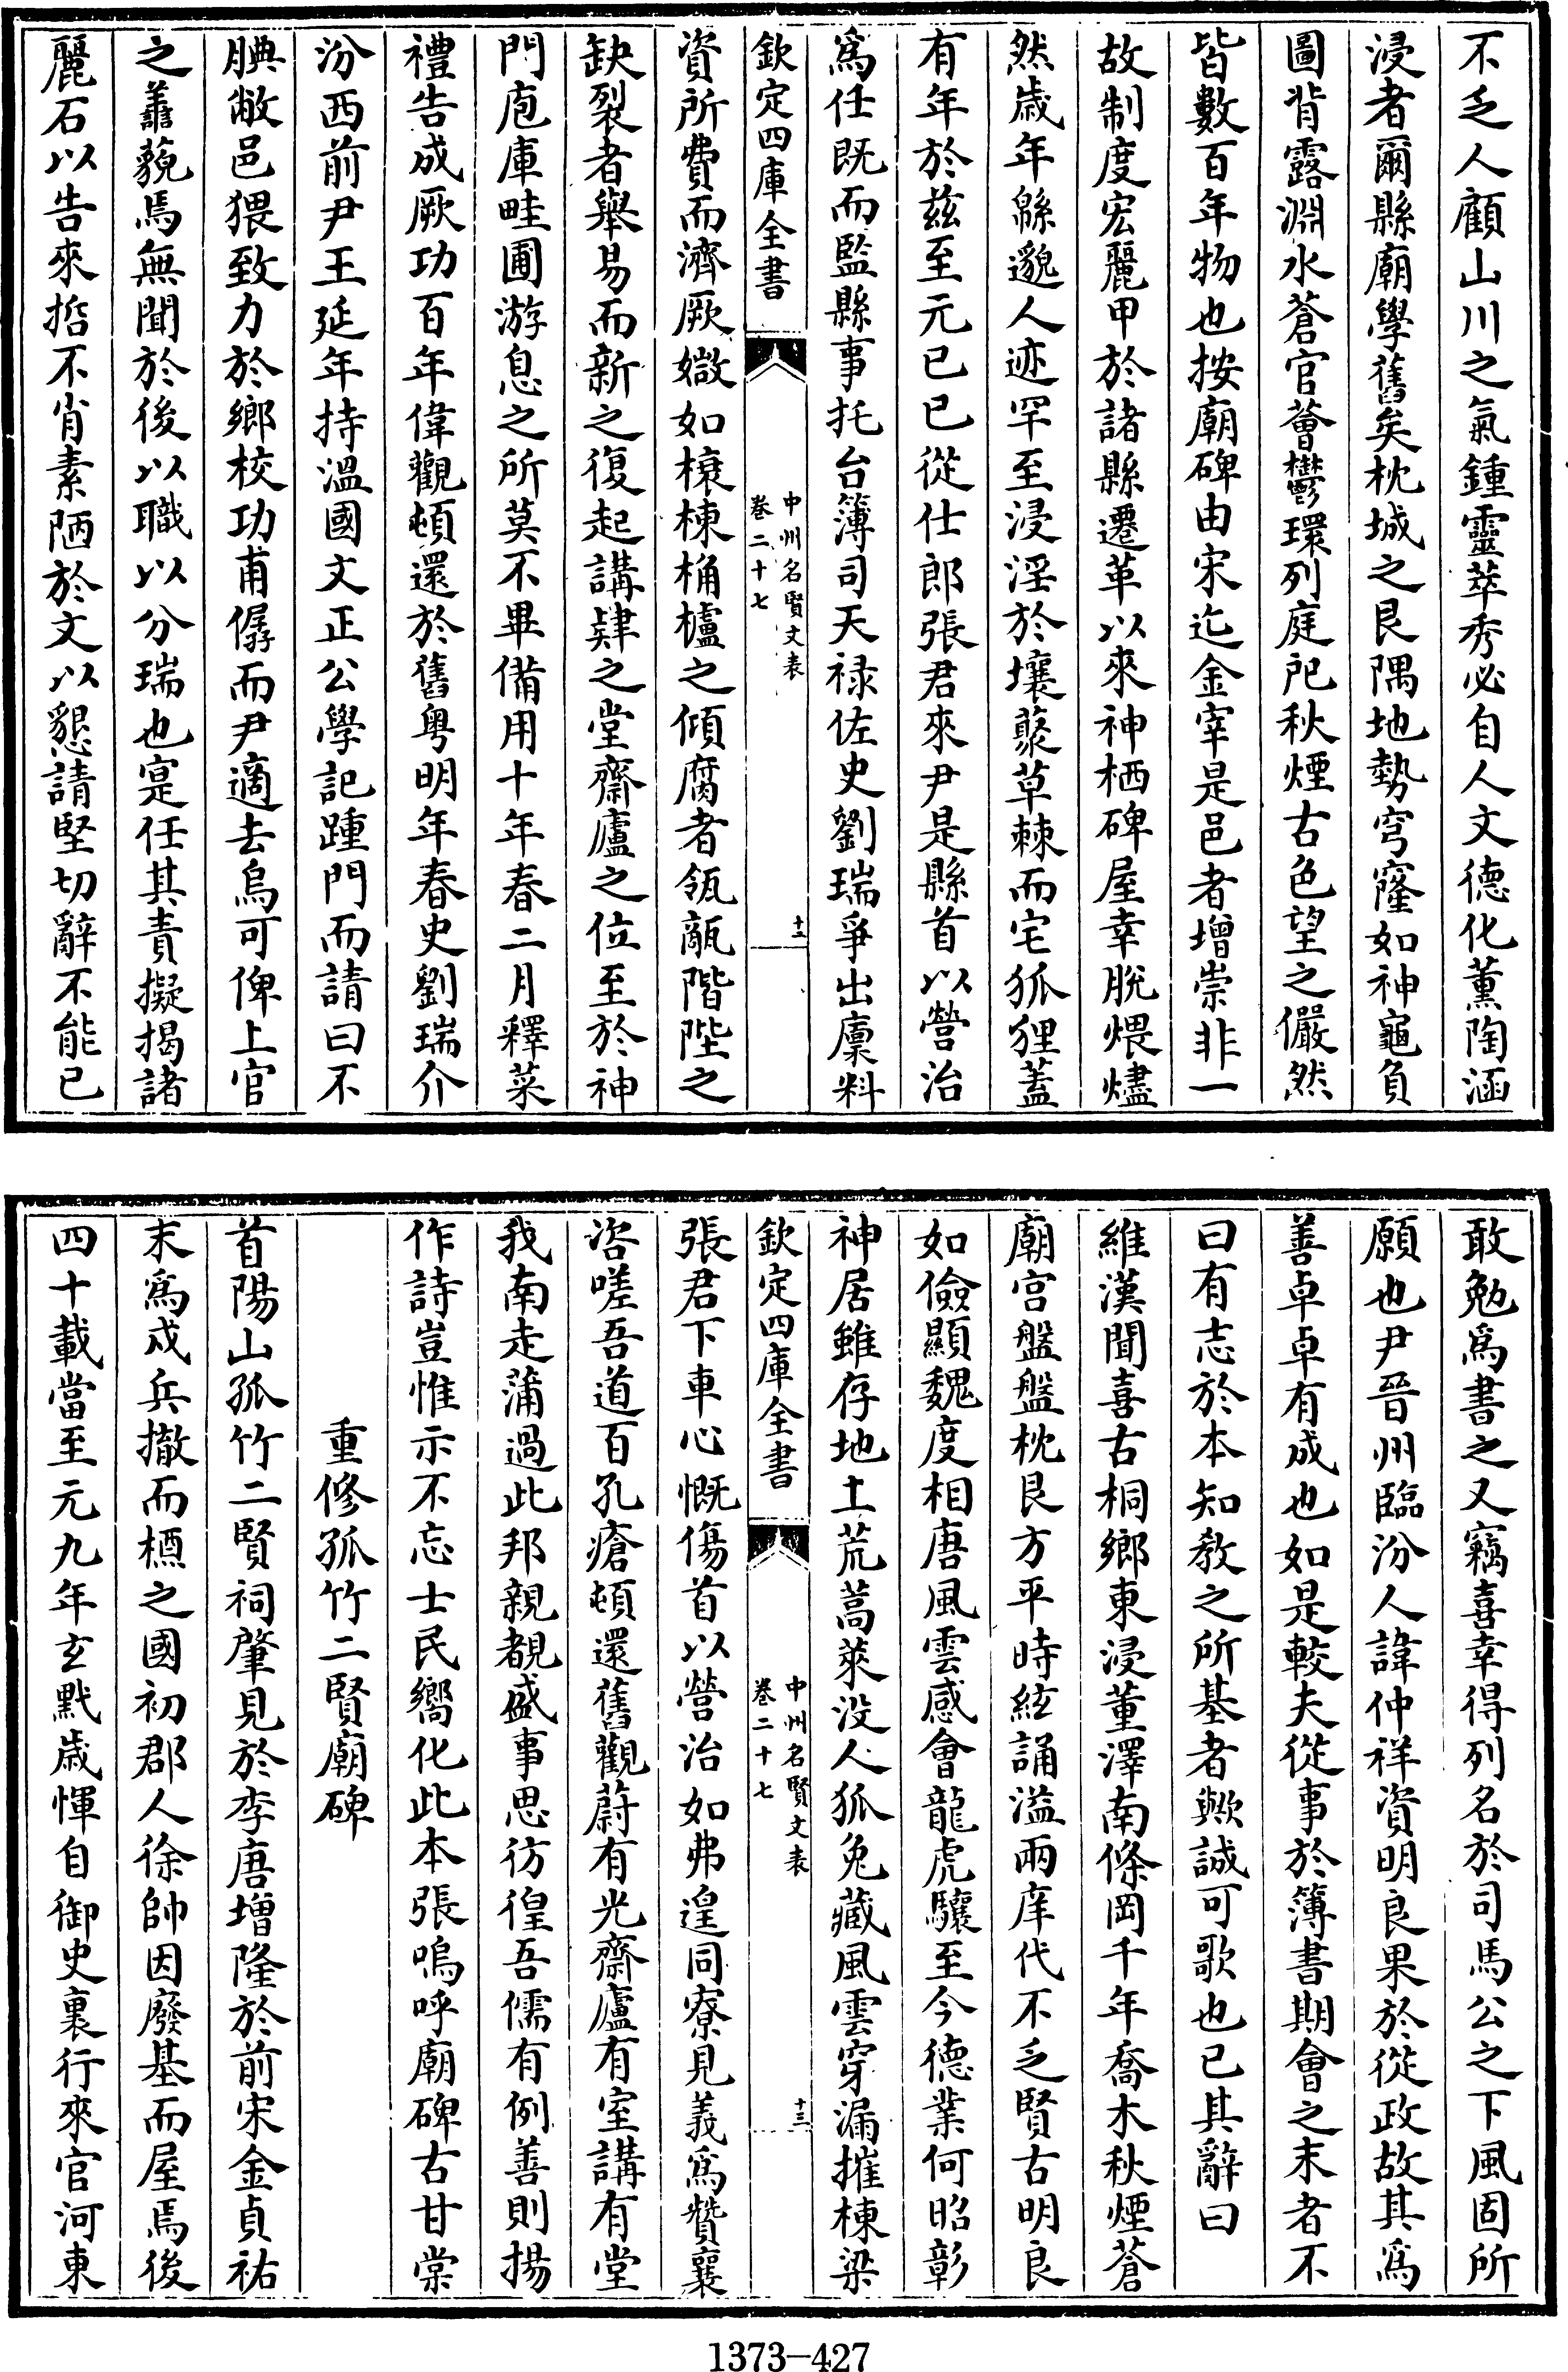 不乏人顧山川之氣鍾靈萃秀必自人文德化薰陶涵
浸者爾縣廟學舊矣枕城之艮隅地勢穹窿如神龜負
圖背露淵水蒼官薈鬱環列庭戺秋煙古色望之儼然
皆數百年物也按廟碑由宋迄金宰是邑者增崇非一
故制度宏麗甲於諸縣遷革以來神栖碑屋幸脫煨燼
然歲年緜邈人迹罕至浸淫於壤蘂草棘而宅狐狸蓋
有年於兹至元己巳從仕郎張君來尹是縣首以營治
爲任既而監縣事托台簿司天祿佐史劉瑞爭出廩料
欽定四庫全書
中州名賢文表
卷二十七
十二
資所費而濟厥媺如榱棟桷櫨之傾腐者瓴甋階陛之
缺裂者舉易而新之復起講肄之堂齋廬之位至於神
門庖庫畦圃游息之所莫不畢備用十年春二月釋菜
禮告成厥功百年偉觀頓還於舊粤明年春史劉瑞介
汾西前尹王延年持溫國文正公學記踵門而請曰不
腆敝邑猥致力於鄉校功甫僝而尹適去烏可俾上官
之善藐焉無聞於後以職以分瑞也寔任其責擬揭諸
麗石以告來哲不肖素陋於文以懇請堅切辭不能已
敢勉爲書之又竊喜幸得列名於司馬公之下風固所
願也尹晉州臨汾人諱仲祥資明良果於從政故其爲
善卓卓有成也如是較夫從事於簿書期會之末者不
曰有志於本知敎之所基者歟誠可歌也已其辭曰
維漢聞喜古桐鄉東浸董澤南條岡千年喬木秋煙蒼
廟宮盤盤枕艮方平時絃誦溢兩庠代不乏賢古明良
如儉顯魏度相唐風雲感會龍虎驤至今德業何昭彰
神居雖存地土荒蒿萊没人狐兔藏風雲穿漏摧棟梁
欽定四庫全書
中州名賢文表
卷二十七
十三
張君下車心慨傷首以營治如弗遑同寮見義爲贊襄
咨嗟吾道百孔瘡頓還舊觀蔚有光齋廬有室講有堂
我南走蒲過此邦親覩盛事思彷徨吾儒有例善則揚
作詩豈惟示不忘士民嚮化此本張嗚呼廟碑古甘棠
重修孤竹二賢廟碑
首陽山孤竹二賢祠肇見於李唐增隆於前宋金貞祐
末爲戍兵撤而槱之國初郡人徐帥因廢基而屋焉後
四十載當至元九年玄黓歲惲自御史裏行來官河東
1373-427